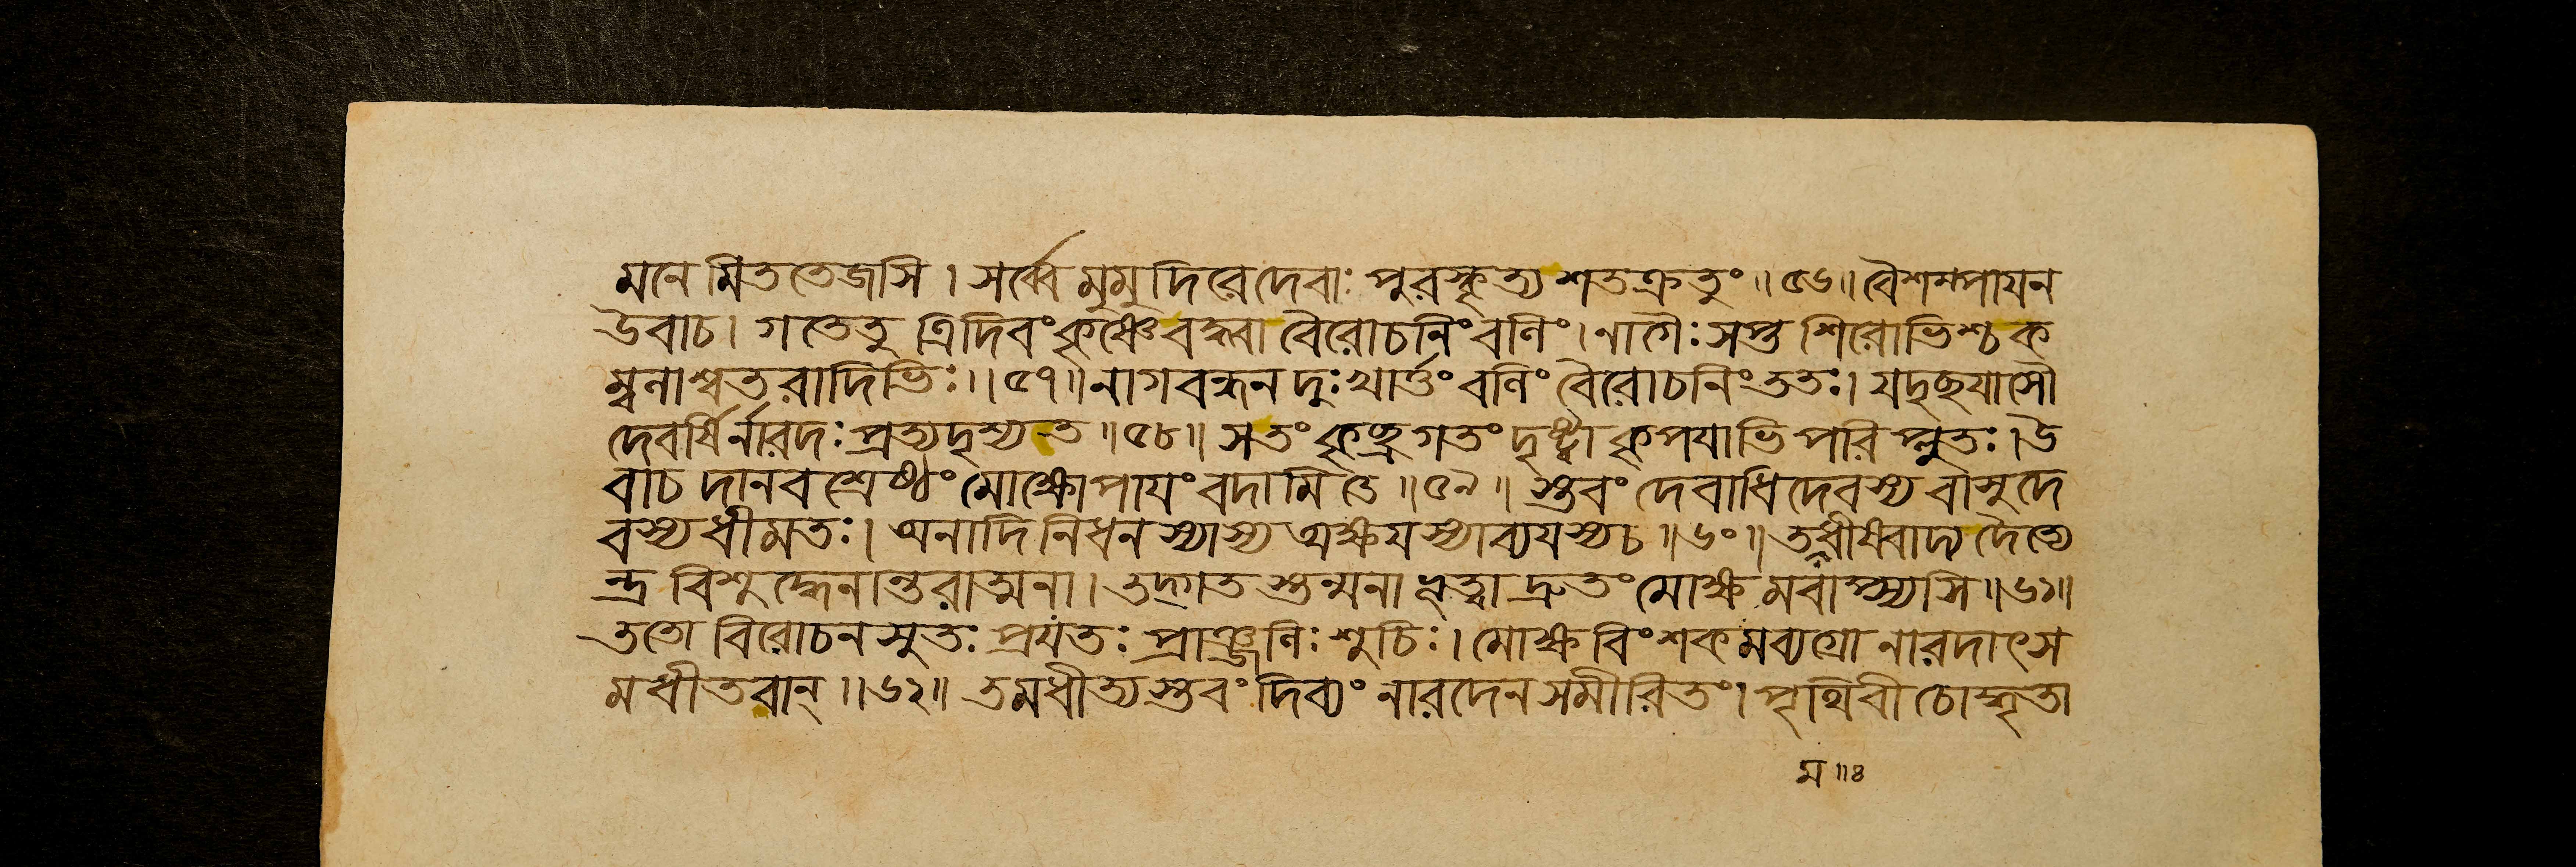 মনেমিততেজসি। সর্ব্বেমুমুদিরেদেবাঃ পুরস্কৃত্যশতক্রতুং॥৫৬॥বৈশম্পায়ন
উবাচ। গতেতু ত্রিদিবংকৃষ্ণেবদ্ধ্বা বৈরোচনিংবলিং। নাগৈঃসপ্তশিরোভিশ্চক
ম্বলাশ্বতরাদিভিঃ॥৫৭॥নাগবন্ধনদুঃখার্ত্তংবলিং বৈরোচনিংততঃ। যদৃছযাসৌ
দেবর্ষির্নারদঃপ্রত্যদৃশ্যত॥৫৮॥ সতংকৃছ্রগতংদৃষ্ট্বা কৃপযাভিপরিপ্লুতঃ। উ
বাচ দানবশ্রেষ্ঠং মোক্ষোপাযংবদামিতে॥৫৯॥ স্তবং দেবাধিদেবস্য বাসুদে
বস্যধীমতঃ। অনাদিনিধনস্যাস্য অক্ষযস্যাব্যযস্যচ॥৬০॥তমধীষ্বাদ্য দৈত্যে
ন্দ্র বিশুদ্ধেনান্তরাত্মনা। তদ্গতস্তন্মনা ভূত্বা দ্রুতংমোক্ষমবাপ্স্যসি॥৬১॥
ততো বিরোচনসুতঃ প্রযতঃ প্রাঞ্জলিঃশুচিঃ। মোক্ষবিংশকমব্যগ্রো নারদাৎস
মধীতবান্॥৬২॥ তমধীত্যস্তবংদিব্যং নারদেনসমীরিতং। পৃথিবীচোদ্ধৃতা
ম॥৪